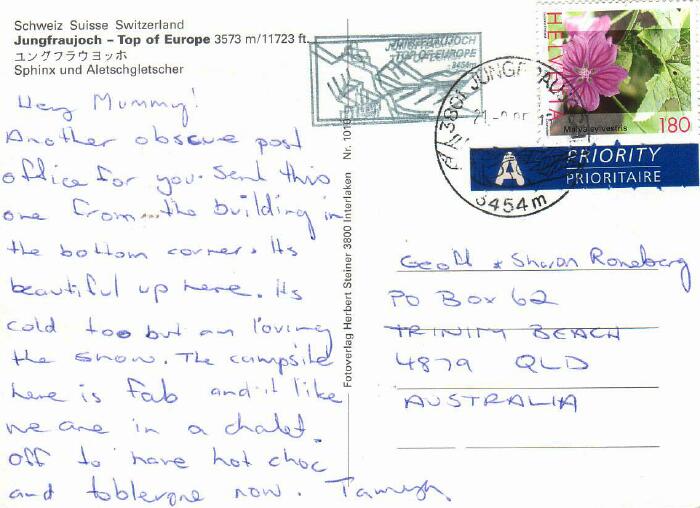 Schweiz Suisse Switzerland
Jungfraujoch – Top of Europe 3573 m/11723 ft.
ユングフラウヨッホ
Sphinx und Aletschgletscher
Hey Mummy!
Another obscure post
office for you. Sent this
one from the building in
the bottom corner. Its
beautiful up here. Its
cold too but am loving
the snow. The campsite
here is fab and it like
we are in a chalet.
off to have hot choc
and toblerone now. Tamryn.
Fotoverlag Herbert Steiner 3800 Interlaken Nr. 1019
JUNGFRAUJOCH
TOP OF EUROPE
3454m
3801 JUNGFRAU
3454 m
HELVETIA
Malva sylvestris
180
A PRIORITY
PRIORITAIRE
Geoff & Sharon Roneberg
PO Box 62
TRINITY BEACH
4879 QLD
AUSTRALIA